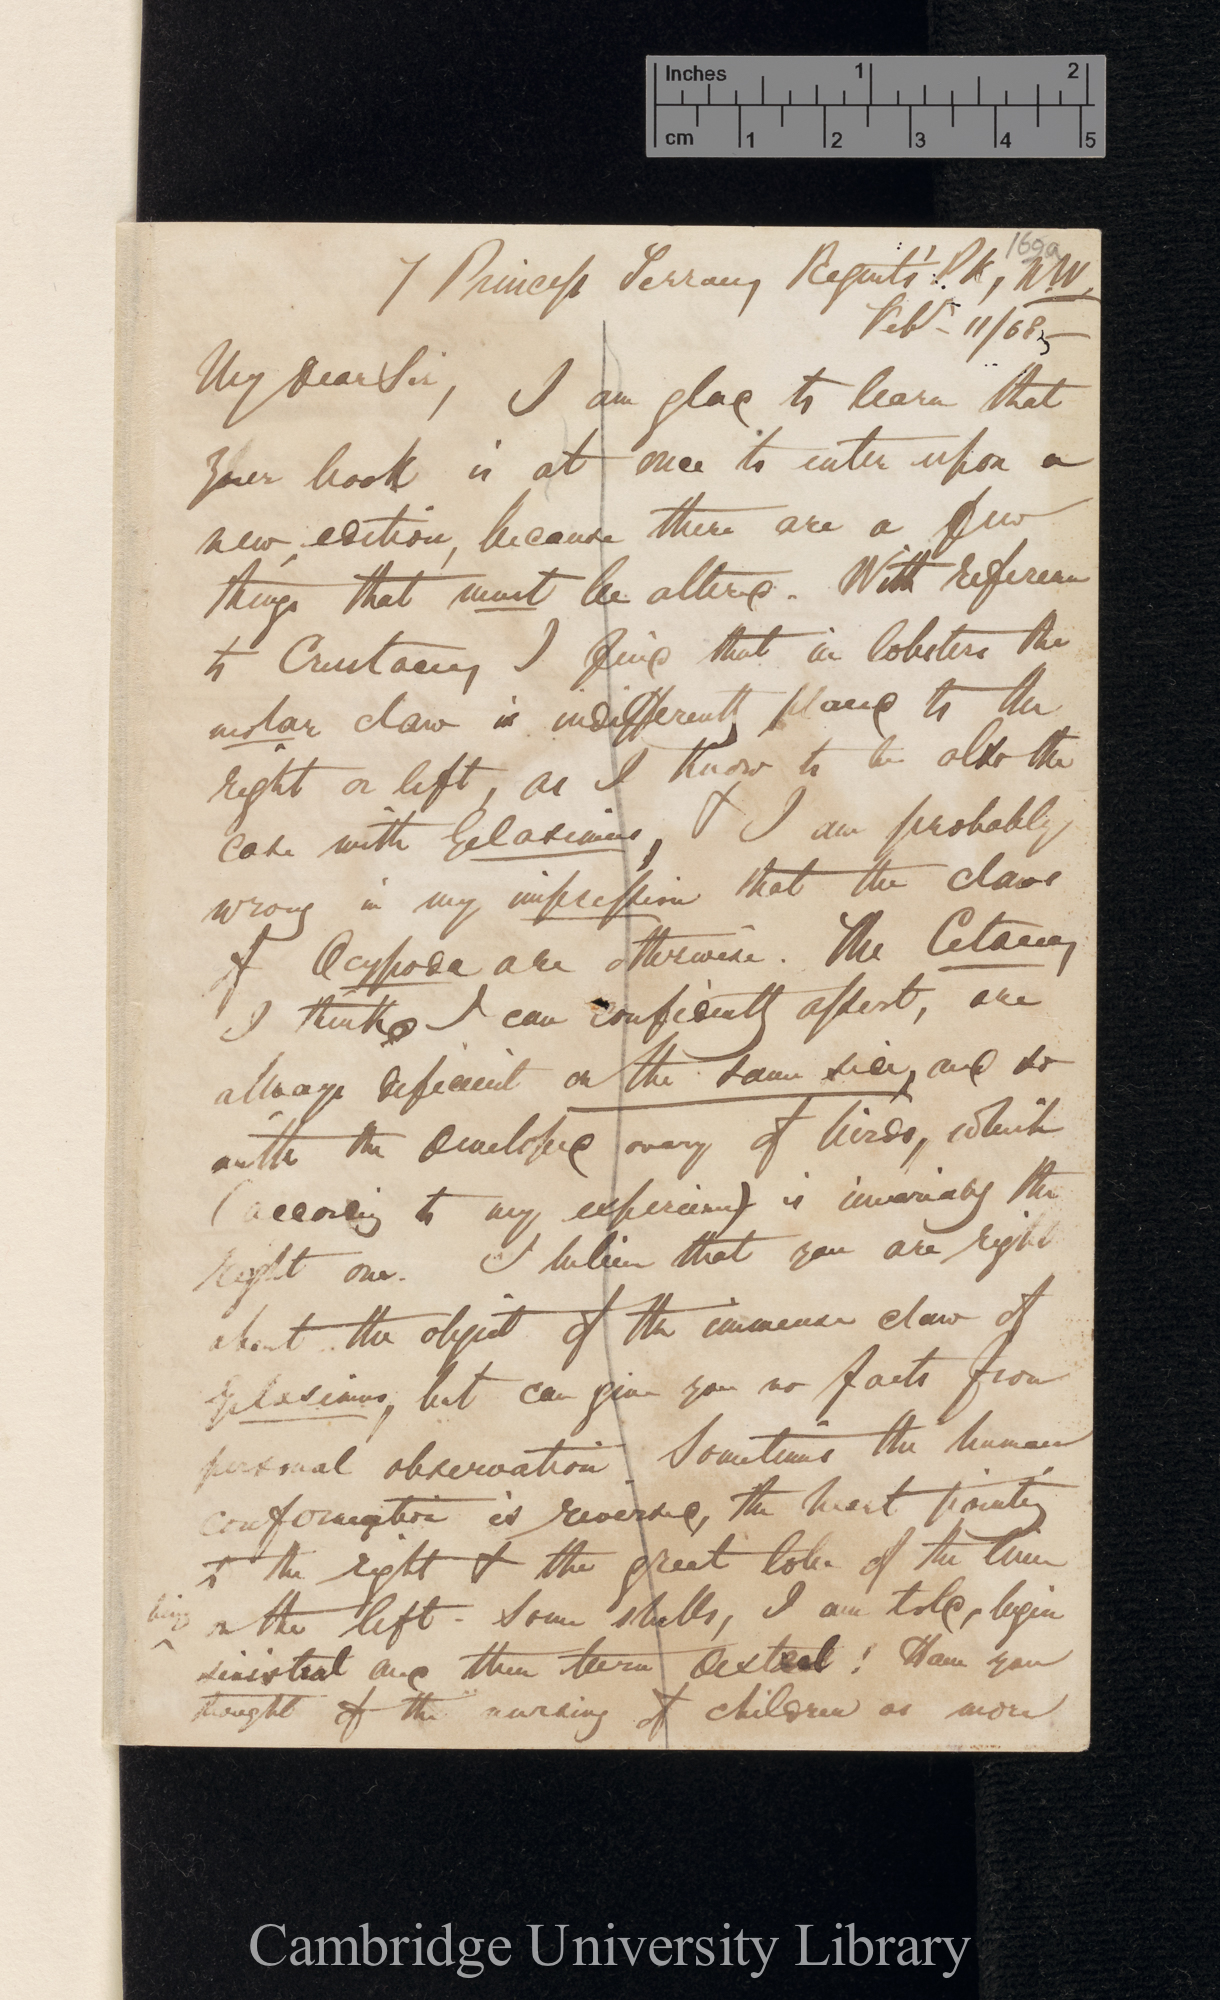 Inches 1 2
cm 1 2 3 4 5
169a
7 Princess Terrace, Regent's Pk, N.W.
Feb. 11/68,—
My dear Sir, I am glad to learn that
your book is at once to enter upon a
new edition, because there are a few
things that must be altered. With reference
to Crustacea, I find that in lobsters the
molar claw is indifferently placed to the
right or left, as I know to be also the
case with Gelasimus, & I am probably
wrong in my impression that the claws
of Ocypoda are otherwise. The Cetacea,
I think I can confidently assert, are
always deficient on the same side, and so
with the developed ovary of birds, which
(according to my experience) is invariably the
right one. I believe that you are right
about the object of the immense claw of
Gelasimus, but can give you no facts from
personal observation. Sometimes the human
conformation is reversed, the heart pointing
to the right & the great lobe of the liver
being on the left. Some shells, I am told, begin
sinistral and then turn dextral! Have you
thought of the nursing of children as more
Cambridge University Library